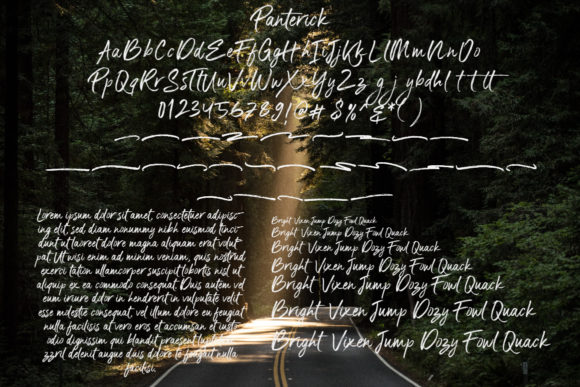 Panterick
AaBbCcDdEeFfGgHhIiJjKkLlMmNnOo
PpQqRrSsTtUuVvWwXxYyZz g j y b d h l t t t t
0123456789!@#$%^&*()
Lorem ipsum dolor sit amet, consectetuer adipisc-
ing elit, sed diam nonummy nibh euismod tinci-
dunt ut laoreet dolore magna aliquam erat volut-
pat. Ut wisi enim ad minim veniam, quis nostrud
exerci tation ullamcorper suscipit lobortis nisl ut
aliquip ex ea commodo consequat. Duis autem vel
eum iriure dolor in hendrerit in vulputate velit
esse molestie consequat, vel illum dolore eu feugiat
nulla facilisis at vero eros et accumsan et iusto
odio dignissim qui blandit praesent luptatum
zzril delenit augue duis dolore te feugait nulla
facilisi.
Bright Vixen Jump Dozy Fowl Quack
Bright Vixen Jump Dozy Fowl Quack
Bright Vixen Jump Dozy Fowl Quack
Bright Vixen Jump Dozy Fowl Quack
Bright Vixen Jump Dozy Fowl Quack
Bright Vixen Jump Dozy Fowl Quack
Bright Vixen Jump Dozy Fowl Quack